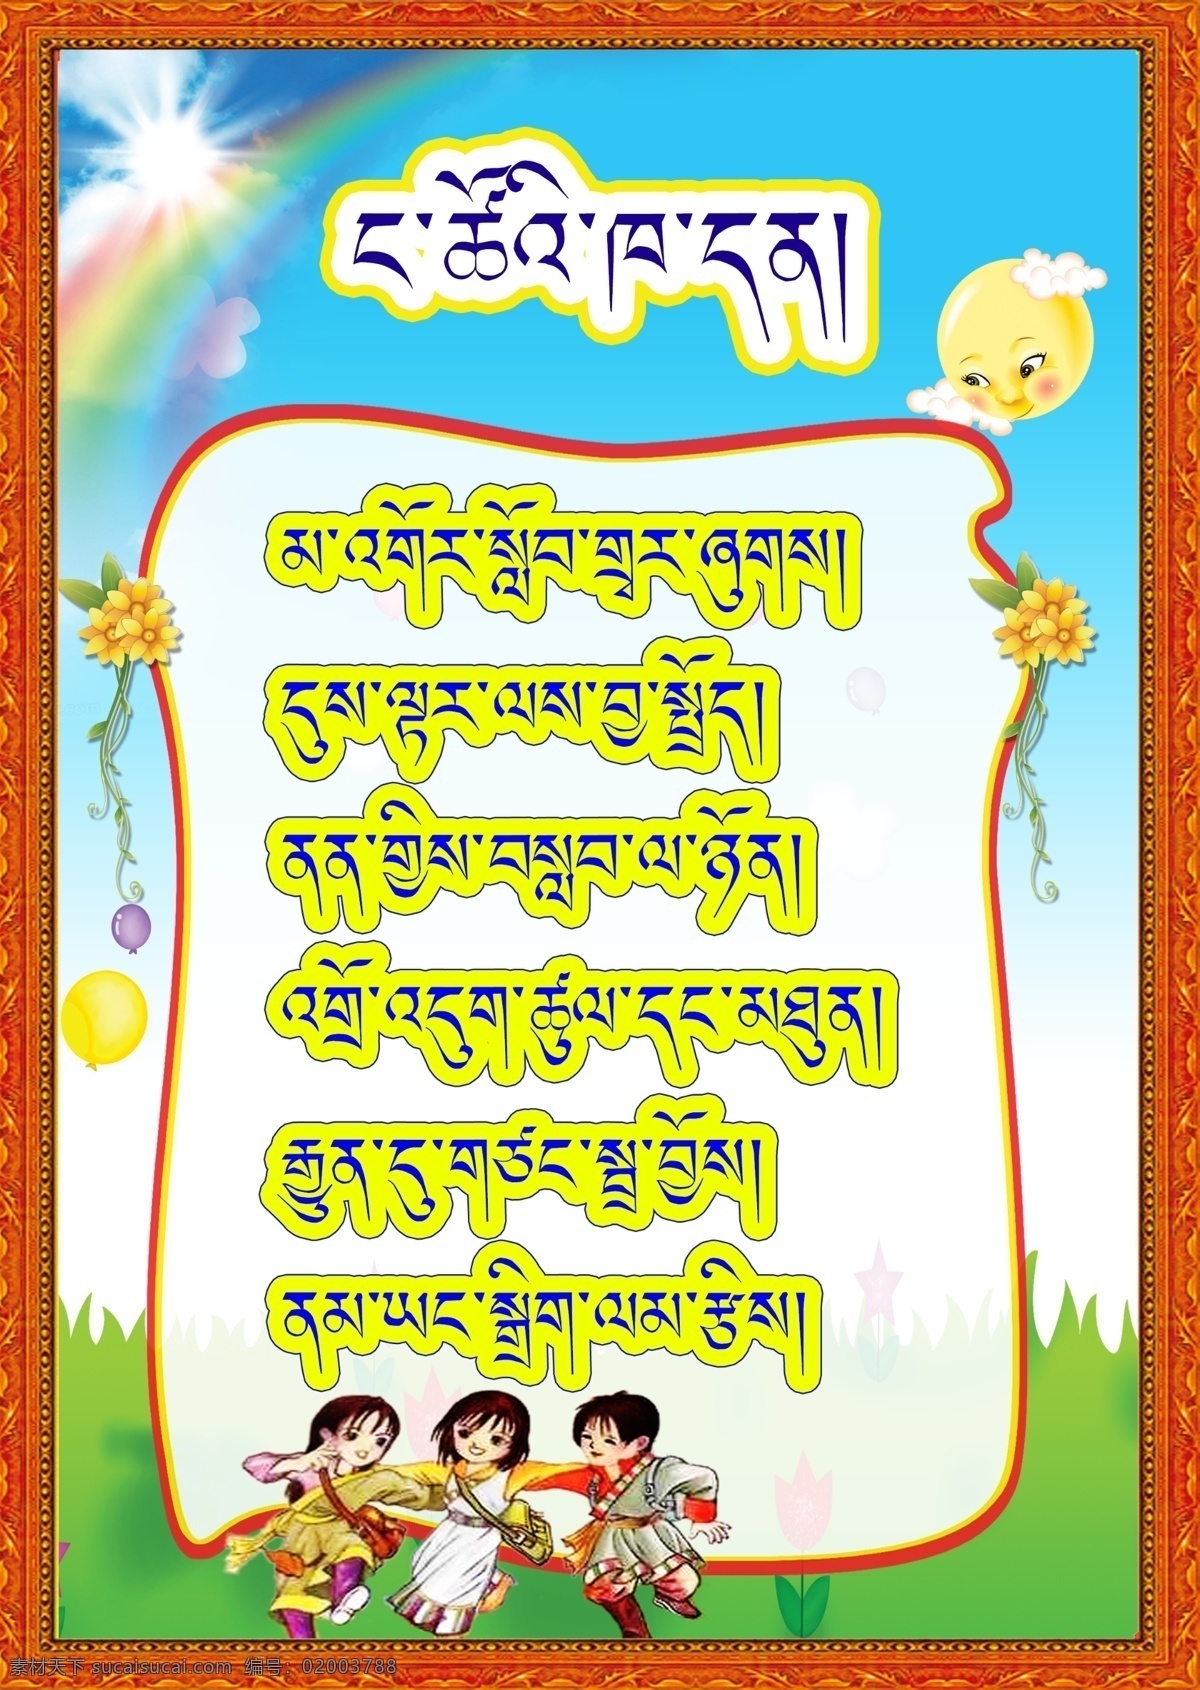 ང་ཚོའི་ཁ་དན།
མ་འགོར་སློབ་གྲར་ཞུགས།
དུས་ལྟར་ལས་བྱ་སྤྲོད།
ནན་གྱིས་བསླབ་ལ་ཉོན།
འགྲོ་འདུག་ཚུལ་དང་མཐུན།
རྒྱུན་དུ་གཙང་སྦྲ་བྱོས།
ནམ་ཡང་སྒྲིག་ལམ་རྩིས།
素材天下 sucaisucai.com 编号：02003788